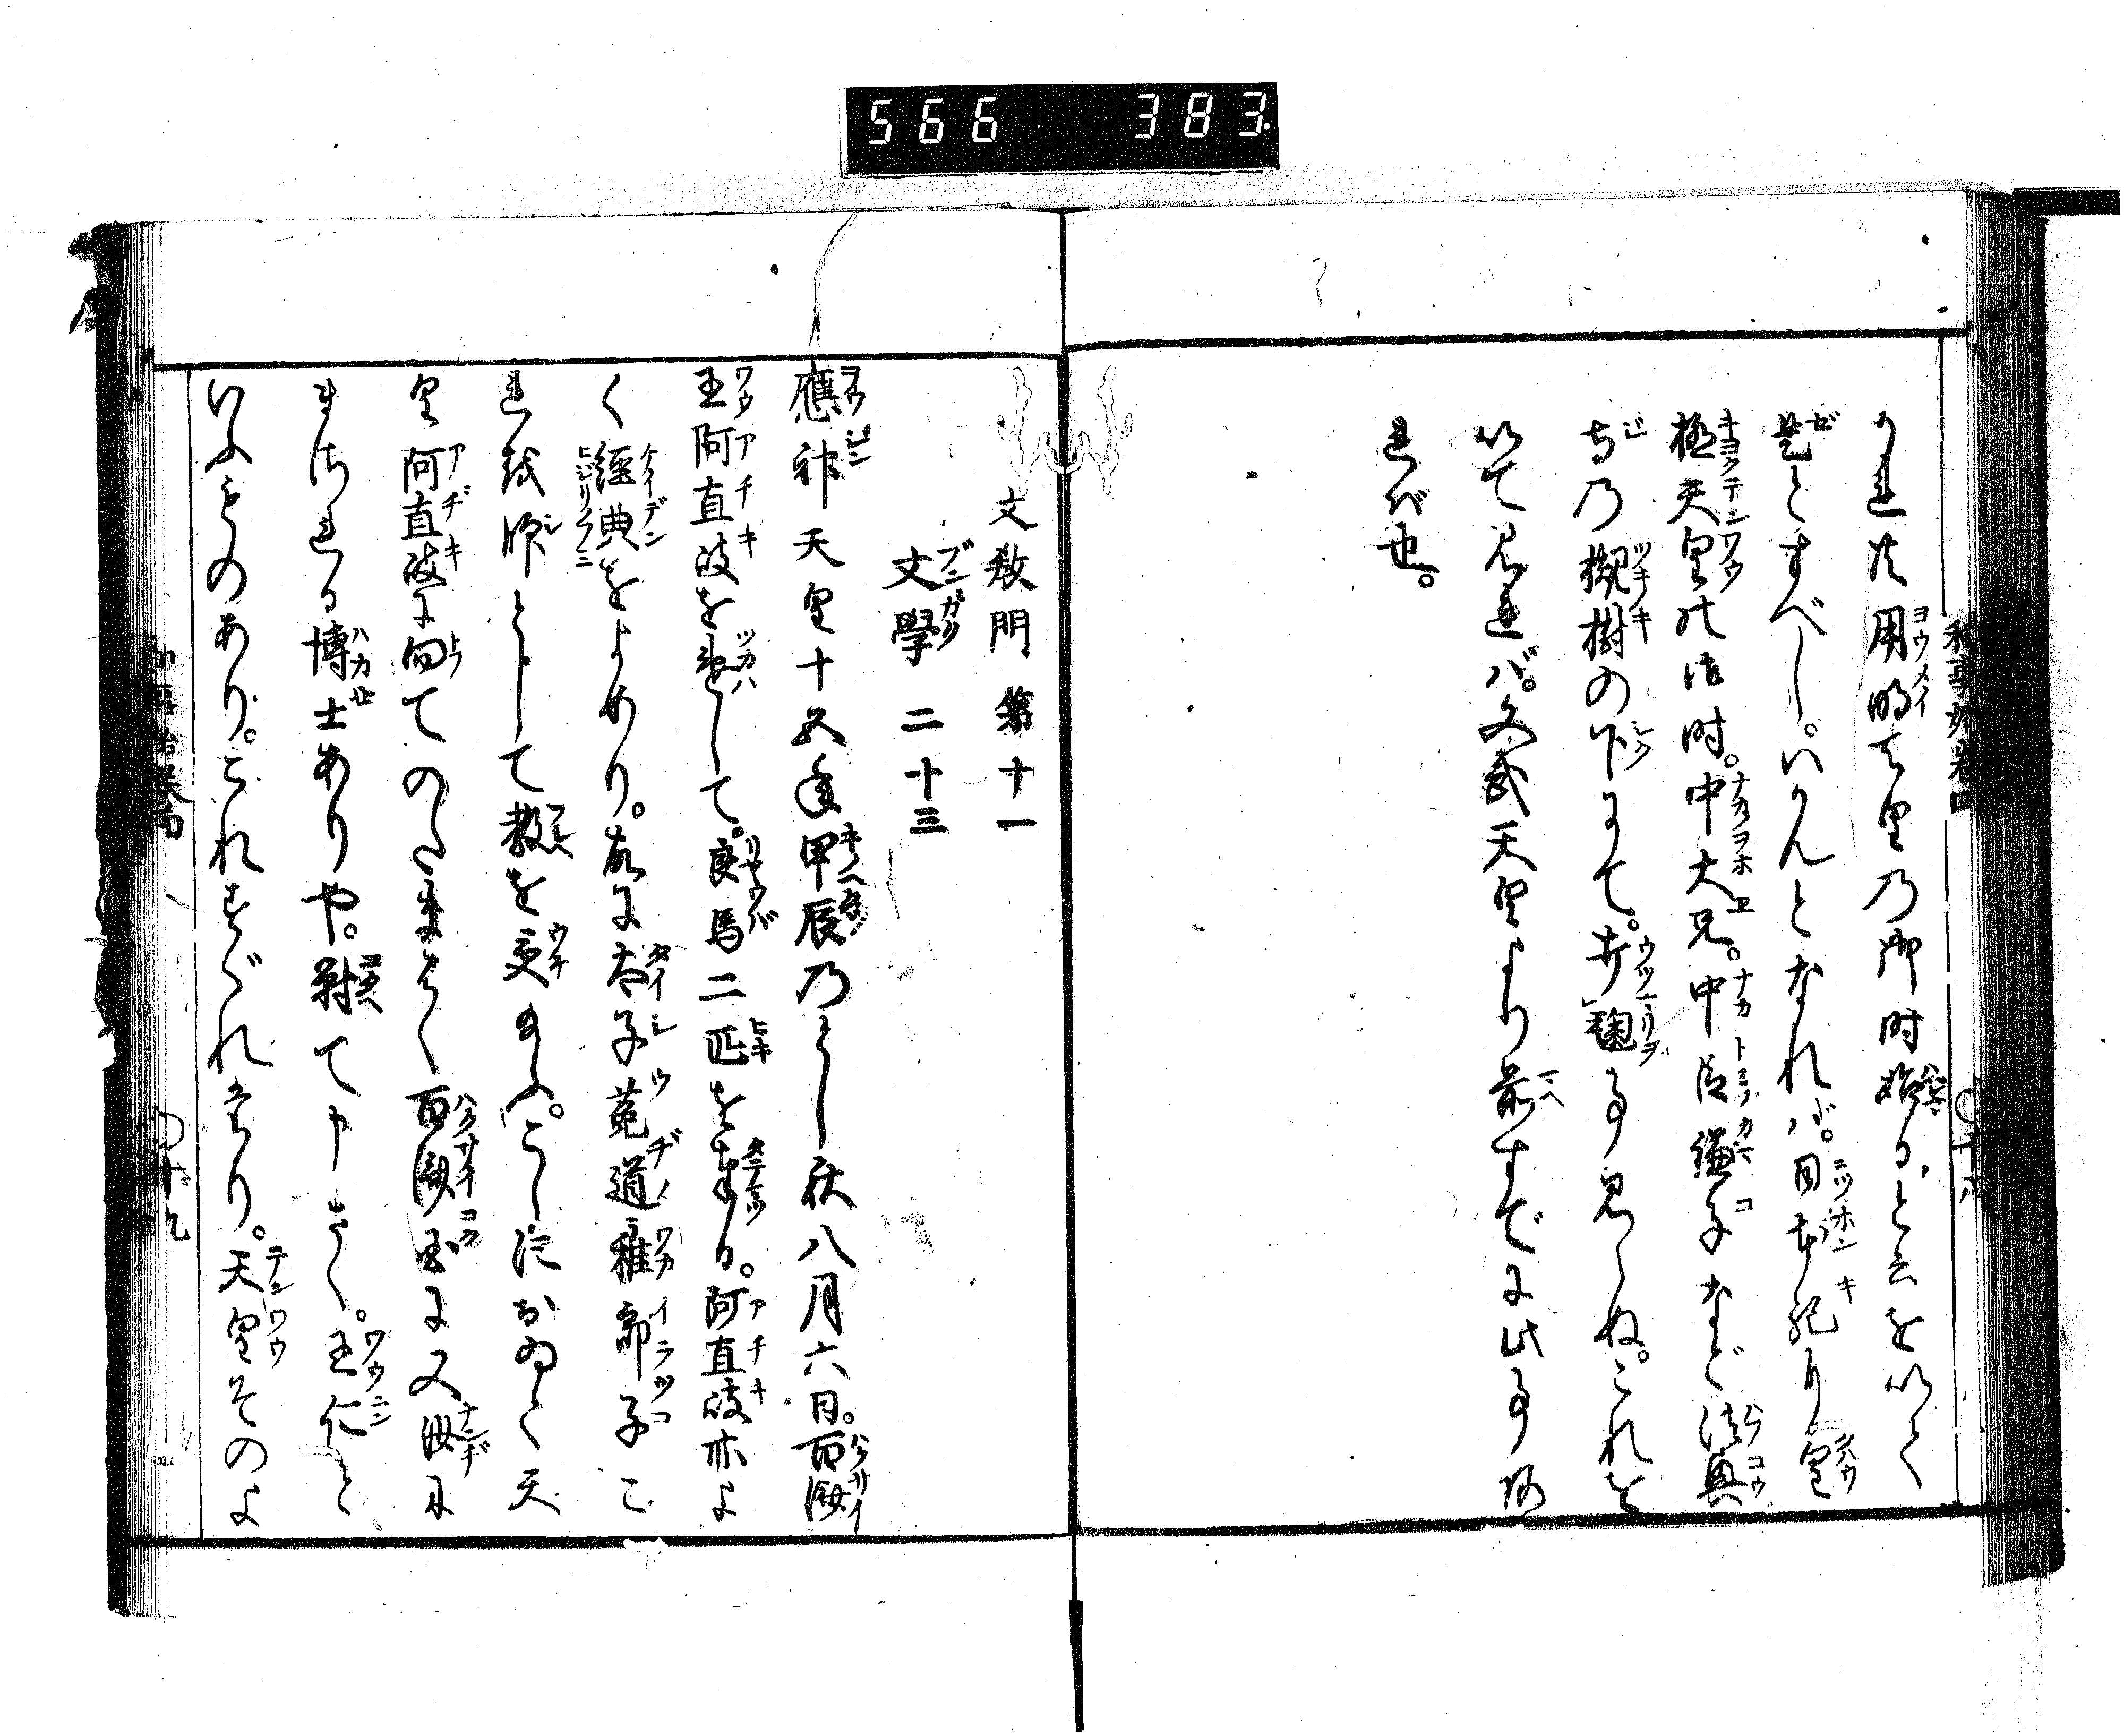 566 383
和事始巻四
十八
うれ共用明天皇乃御時始ると云を以て
是とすべし。いかんとなれば。日本紀り皇
極天皇の御時。中大兄。中臣鎌子など法興
寺乃槻樹の下にて。打毱る事見ヘぬ。これを
以て見れば。文武天皇より前すでに此事あ
れば也。
文教門 第十一
文學 二十三
應神天皇十五年甲辰乃とし秋八月六日。百濟
王阿直岐を遣して。良馬二匹を奉る。阿直岐亦よ
く經典をよめり。故に太子菟道稚郎子こ
れを師として教を受給ふ。こゝにおゐて天
皇阿直岐に向てのたまはく百濟國に又汝に
まされる博士ありや。對て申さく。王仁と
いふものあり。これすぐれたり。天皇そのよ
十九